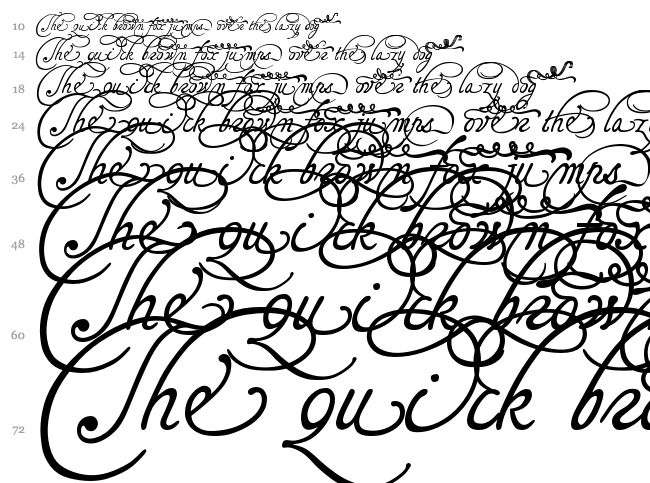 10 The quick brown fox jumps over the lazy dog
14 The quick brown fox jumps over the lazy dog
18 The quick brown fox jumps over the lazy dog
24 The quick brown fox jumps over the laz
36 The quick brown fox jumps
48 The quick brown fox
60 The quick brow
72 The quick bro